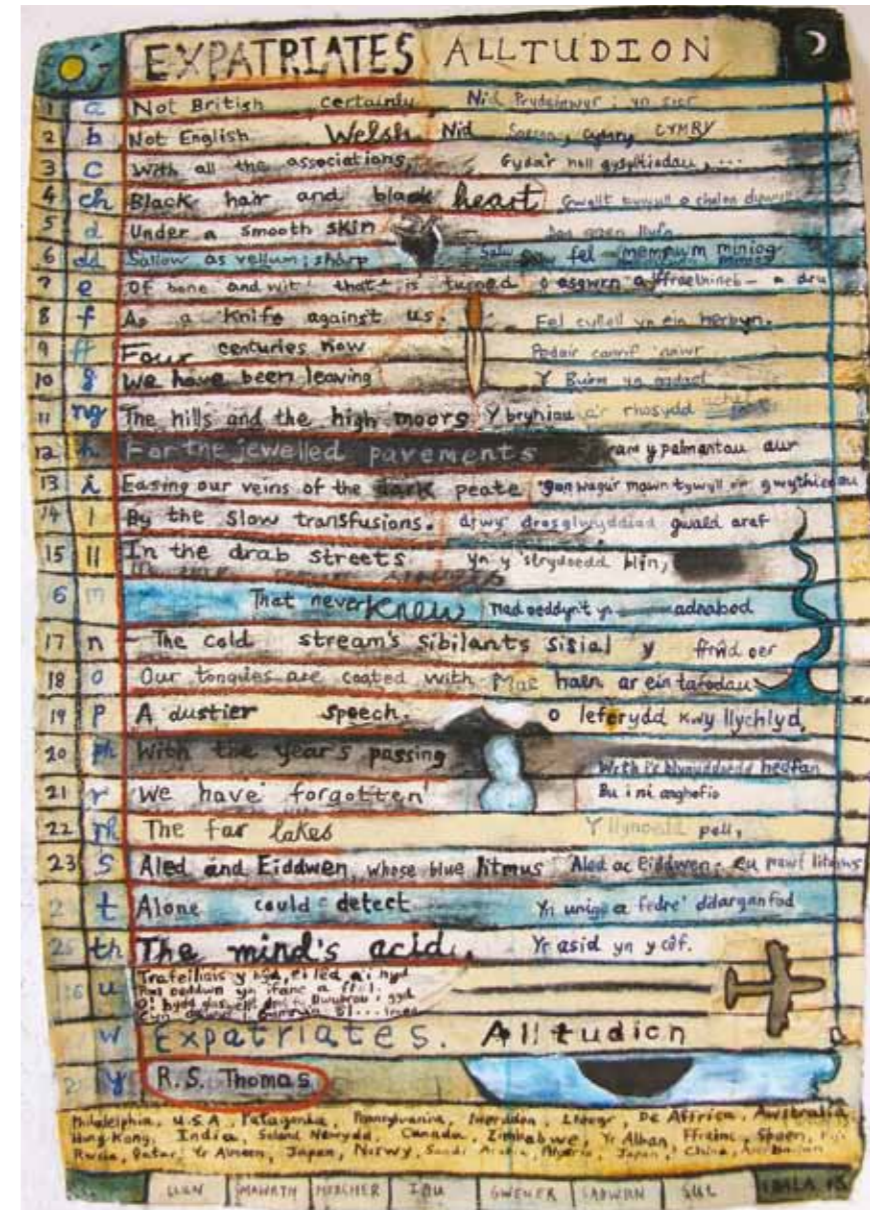 EXPATRIATES ALLTUDION
1 a Not British certainly Nid Prydeinwyr; yn sicr
2 b Not English Welsh Nid Saeson, Cymry CYMRY
3 c With all the associations, Gyda'r holl gysylltiadau, ...
4 ch Black hair and black heart Gwallt tywyll a chalon
5 d Under a smooth skin
6 dd Sallow as vellum; sharp fel memrwm miniog
7 e Of bone and wit that is turned o asgwrn a ffraethineb - a
8 f As a knife against us. Fel cyllell yn ein herbyn.
9 ff Four centuries now Pedair canrif nawr
10 g We have been leaving Y Buim yn gadael
11 ng The hills and the high moors Y bryniau a'r rhosydd uchel
12 h For the jewelled pavements am y palmantau aur
13 i Easing our veins of the dark peate mawn tywyll
14 l By the slow transfusions. drwy drosglwyddiad gwald araf
15 ll In the drab streets yn y 'strydoedd blin,
6 m That never knew nad oeddynt yn adnabod
17 n The cold stream's sibilants sisial y ffrwd oer
18 o Our tongues are coated with Mae haen ar ein tafodau
19 p A dustier speech. o leferydd kwy llychlyd,
20 ph With the year's passing heafan
21 r We have forgotten Bu i ni anghofio
22 rh The far lakes Y llynoedd pell,
23 s Aled and Eiddwen, whose blue litmus Aled ac Eiddwen; eu prawf litmws
2 t Alone could detect Yn unig a fedre' ddarganfod
25 th The mind's acid. Yr asid yn y côf.
u Trafeiliais y byd, ei led a'i hyd
Pan oeddwn yn ifanc a ffôl.
w Expatriates. Alltudion
y R.S. Thomas
Philadelphia, U.S.A, Patagonia, Pennsylvania, Iwerddon, Lloegr, De Affrica, Awstralia
Hong Kong, India, Seland Newydd, Canada, Zimbabwe, Yr Alban, Ffrainc, Sbaen,
Rwsia, Qatar, Yr Almaen, Japan, Norwy, Saudi Arabia, Algeria, Japan, China,
LLUN MAWRTH MERCHER IAU GWENER SADWRN SUL